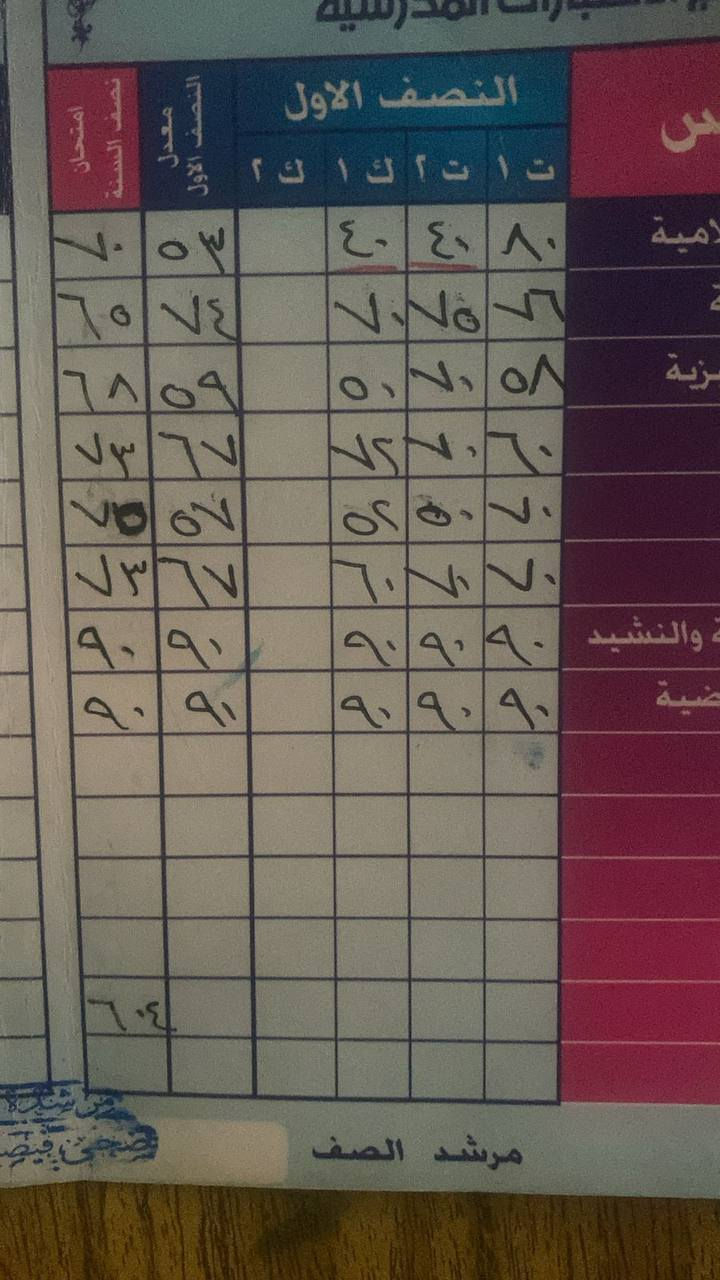 المدرسية
س النصف الاول معدل النصف الاول امتحان نصف السنة
ت ١ ت ٢ ك ١ ك ٢
لامية ٨٠ ٤٠ ٤٠ ٥٣ ٧٠
ة ٧٦ ٧٥ ٧٠ ٧٤ ٦٥
يزية ٥٨ ٧٠ ٥٠ ٥٩ ٦٨
٦٠ ٧٠ ٧٢ ٦٧ ٧٣
٧٠ ٥٠ ٥٢ ٥٧ ٧٥
٧٠ ٧٠ ٦٠ ٦٧ ٧٣
ة والنشيد ٩٠ ٩٠ ٩٠ ٩٠ ٩٠
ضية ٩٠ ٩٠ ٩٠ ٩٠ ٩٠
٦٠٤
مرشد الصف